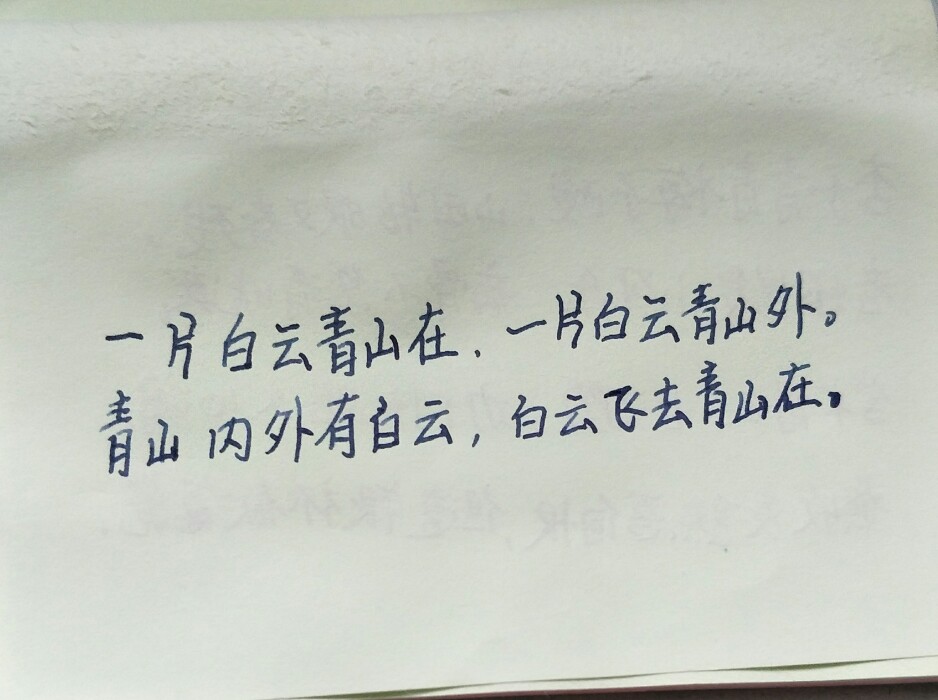 一片白云青山在、一片白云青山外。
青山内外有白云,白云飞去青山在。